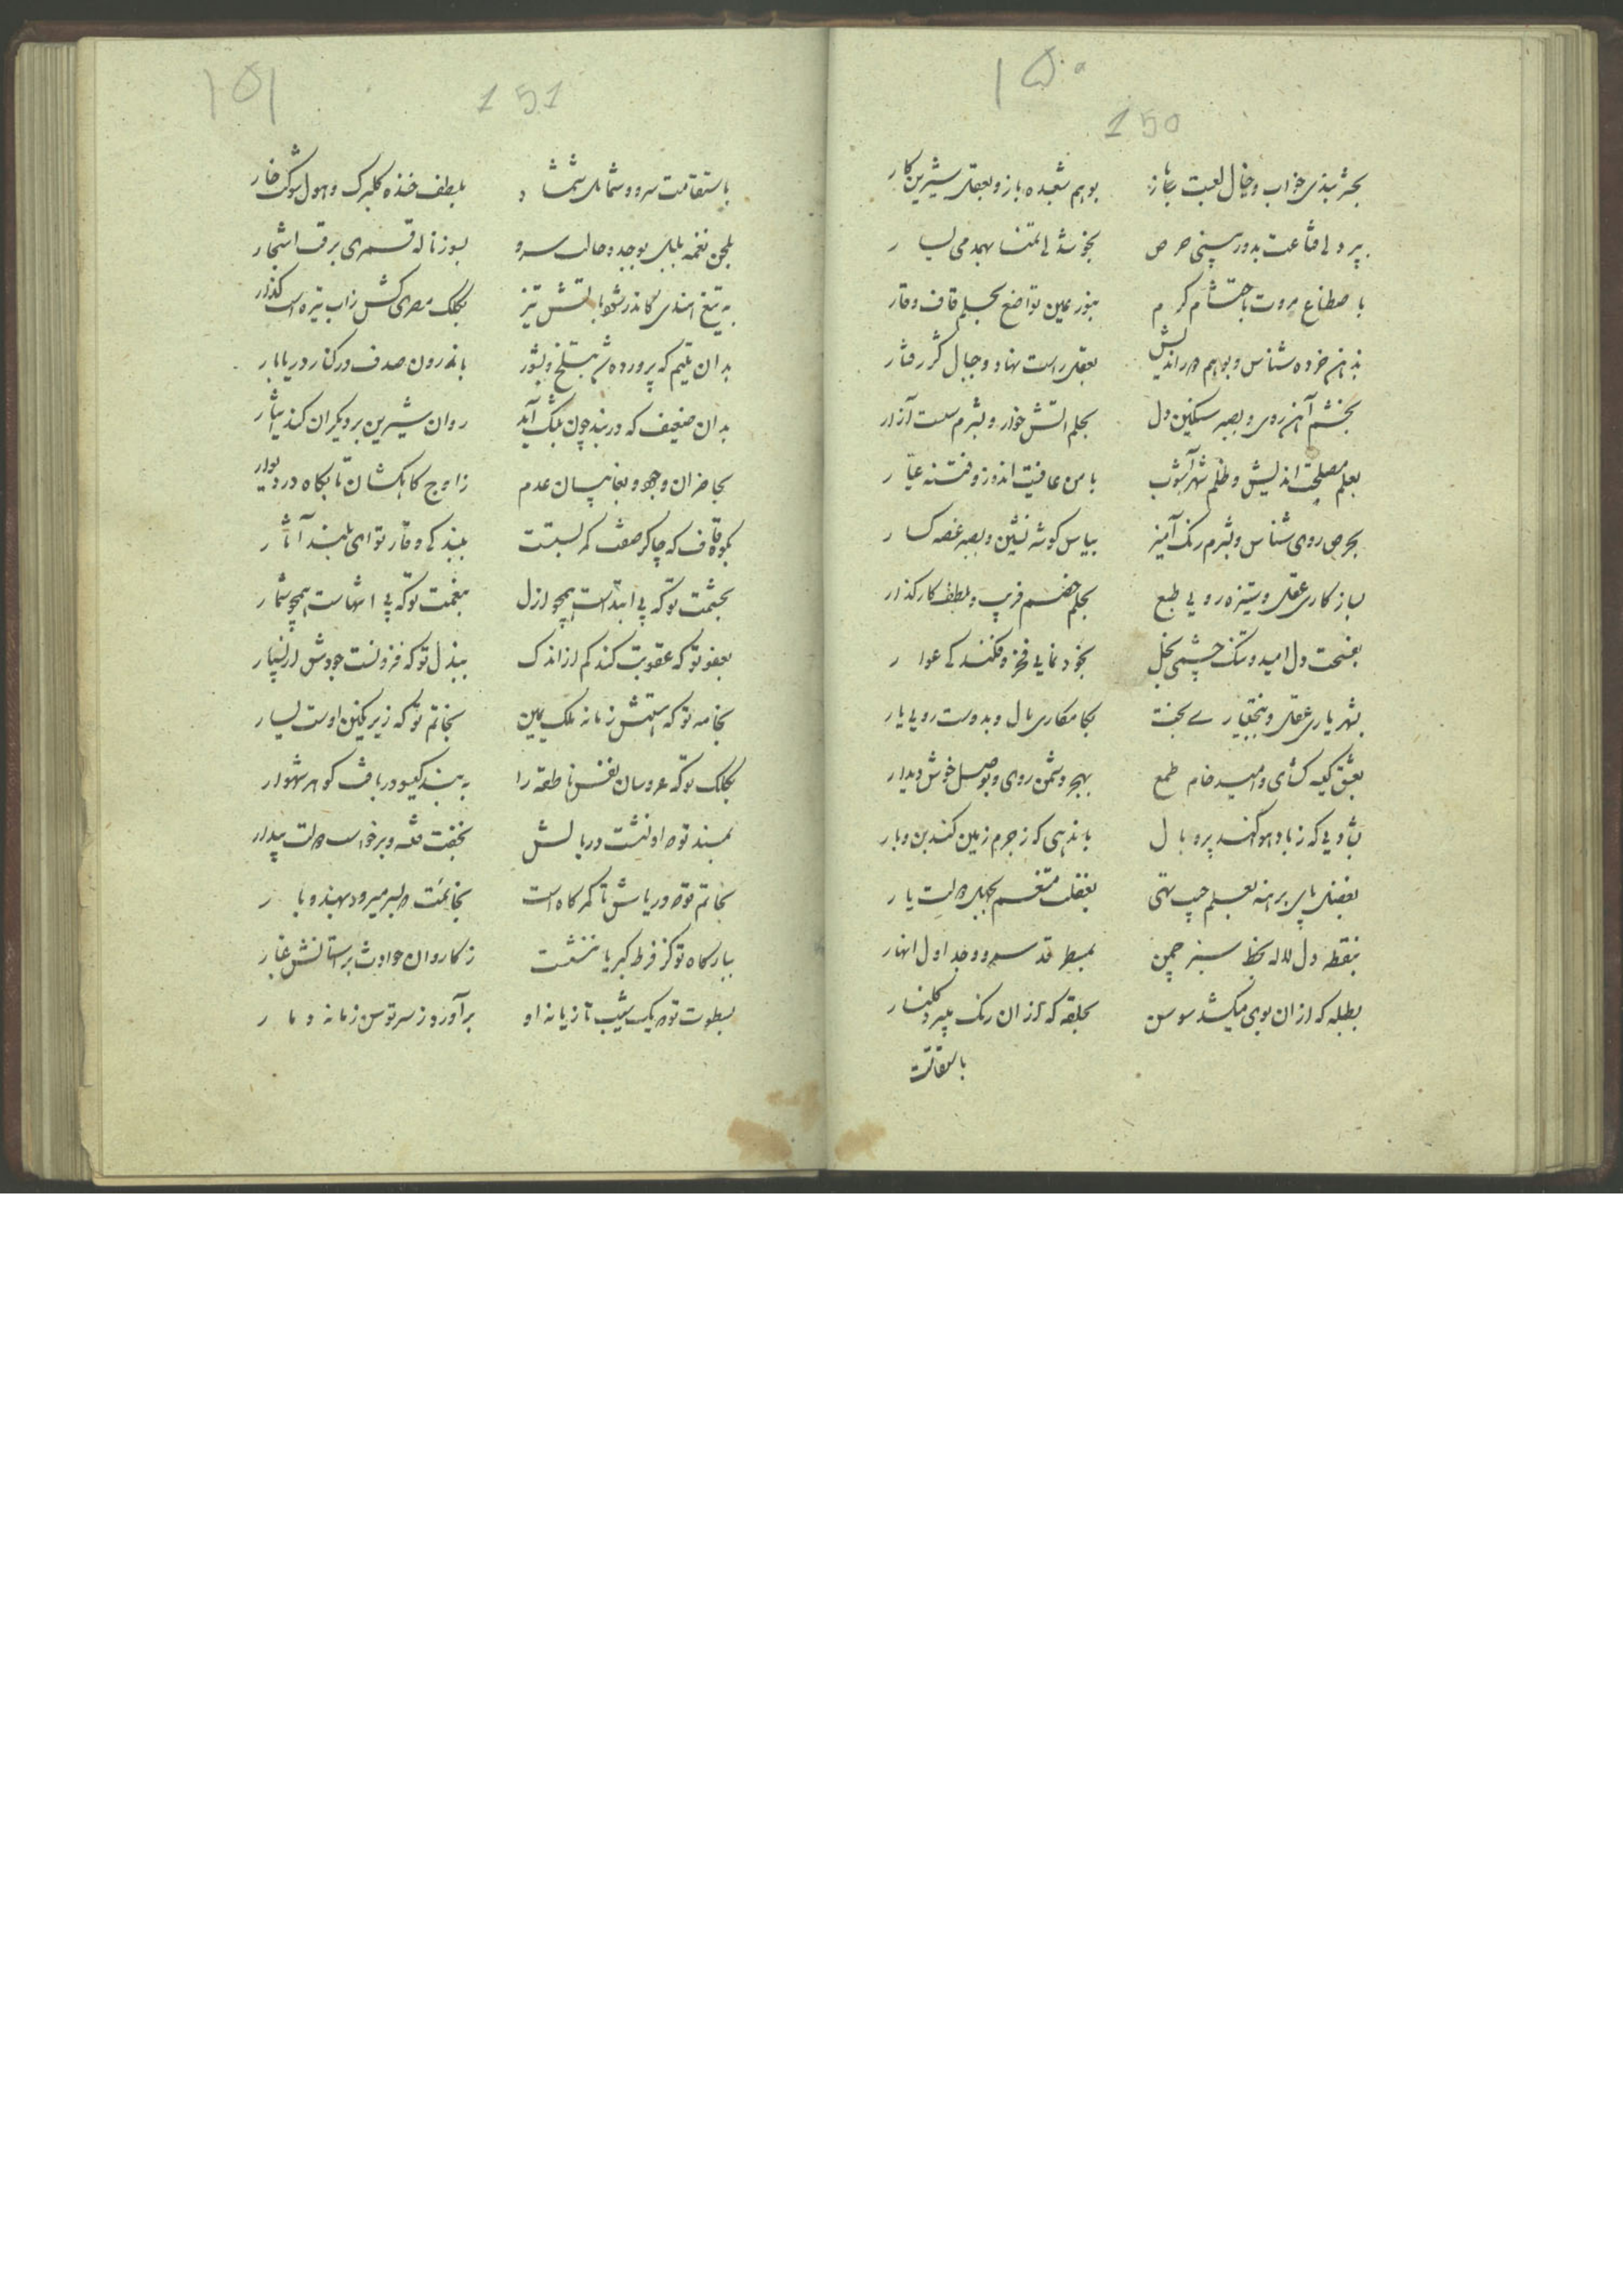 ۱۵۰
150
بحرز بندی خواب و خیال لعبت باز بوهم شعبده باز و بعقل شیرین کار
بپردلی قناعت بدوربینی حرص بخوشدلی تمنا بهمدمی یسار
باصطناع مروت باحتشام کرم بنور یمین تواضع بحلم قاف وقار
بذهن خرده شناس و بوهم دوراندیش بعقل راست نهاد و خیال کژ رفتار
بخشم آهن روی و بصبر سنکین دل بحلم آتش خوار و بشرم سست آزار
بعلم مصلحت اندیش و ظلم شهرآشوب بامن عافیت اندوز و فتنه عیار
بحرص روی شناس و بشرم رنک آمیز بیاس کوشه نشین و بصبر غصه کسار
بسازکاری عقل و ستیزه رویی طبع بحلم خصم فریب و بلطف کارکذار
بفسحت دل امید و تنک چشمی بخل بخودنمایی فخر و فکندکی عوار
بشهریاری عقل و ببختیاری بخت بکامکاری مال و بدوست رویی یار
بعشق کیسه کشای و امید خام طمع بهجر دشمن روی و بوصل خوش دیدار
بباد پی که زباد هوا کند پر و بال باندهی که ز جرم زمین کند بن و بار
بفضل پای برهنه بعلم جیب تهی بغفلت متنعم بجهل دولت یار
بنقطه دل لاله بخط سبز چمن بمسطر قد سرو و جداول انهار
بطبله که ازان بوی میکشد سوسن بحلقه که ازان رنک میبرد کلنار
باستقامت
۱۵۱
151
باستقامت سرو و شمایل شمشاد بلطف خنده کلبرک و هول شوکت خار
بلحن نغمه بلبل بوجد و حالت سرو بسوز ناله قمری برقت اشجار
به تیغ هندی کاندر شود باتش تیز بکلک مصری کش زاب تیره است کذار
بدان یتیم که پرورده شد بتلخ و بشور باندرون صدف در کنار دریابار
بدان ضعیف که در بند چون بتنک آید روان شیرین بر دیکران کند ایثار
بحاضران وجود و بغایبان عدم ز اوج کاهکشان تا بکاه در دیوار
بکوه قاف که چاکر صفت کمر بستست ببندکی وقار تو ای بلند آثار
بحشمت تو که بی ابتداست همچو ازل بنعمت تو که بی انتهاست همچو شمار
بعفو تو که عقوبت کند کم از اندک ببذل تو که فزونست جودش از بسیار
بخامه تو که هستش زمانه ملک یمین بخاتم تو که زیر نکین اوست یسار
بکلک تو که عروسان نفس ناطقه را به بند کیسو در بافت کوهر شهوار
بمسند تو که او نشست در بالش بخفت فتنه و برخواست دولت بیدار
بخاتم تو که دریاش تا کمرکاه است بخانمت که بسر میرود بهند و بار
ببارکاه تو کز فرط کبریا ننشست ز کاروان حوادث بر آستانش غبار
بسطوت تو که یک شیب تازیانه او برآورد ز سر توسن زمانه دمار